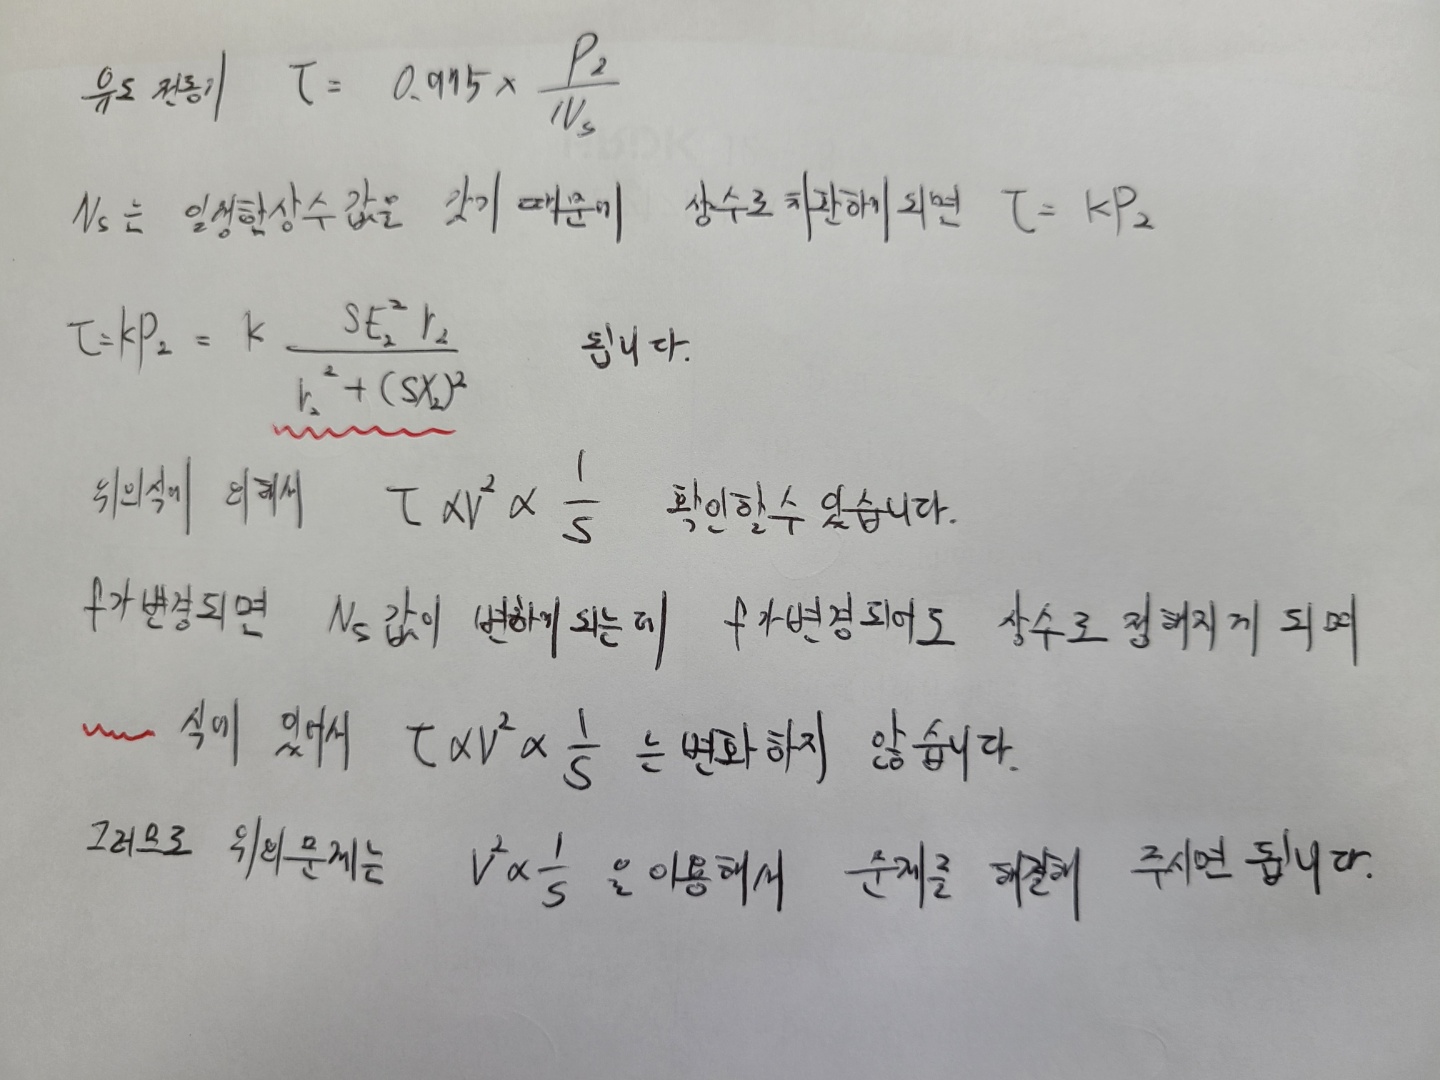 유도 전동기 τ = 0.975 × P₂/Nₛ
Nₛ는 일정한상수 값을 갖기 때문에 상수로 치환하게되면 τ = kP₂
τ=kP₂ = k SE₂² r₂ / r₂² + (SX₂)² 됩니다.
위의식에 의해서 τ ∝V² ∝ 1/S 확인할수 있습니다.
f가변경되면 Nₛ값이 변하게 되는데 f가변경되어도 상수로 정해지게 되며
식에 있어서 τ ∝V² ∝ 1/S 는 변화하지 않습니다.
그러므로 위의문제는 V² ∝ 1/S 을 이용해서 문제를 해결해 주시면 됩니다.